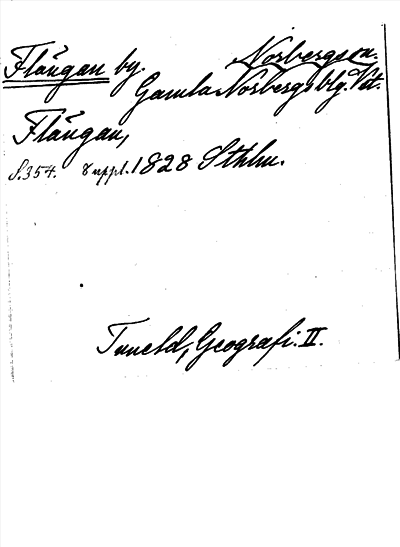 Flängan by. Norbergs sn.
Gamla Norbergs blg. Vst.
Flängan,
S.354. 8 uppl. 1828 Sthlm.
Tuneld, Geografi. II.